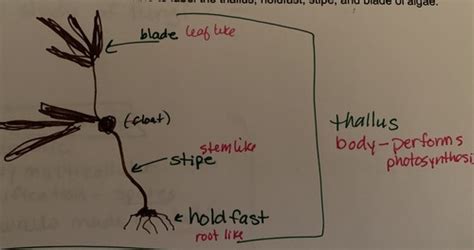 label the thallus, holdfast, stipe, and blade of algae.
blade leaf like
(float)
thallus
stem like
body - performs
stipe
photosynthesi
holdfast
root like